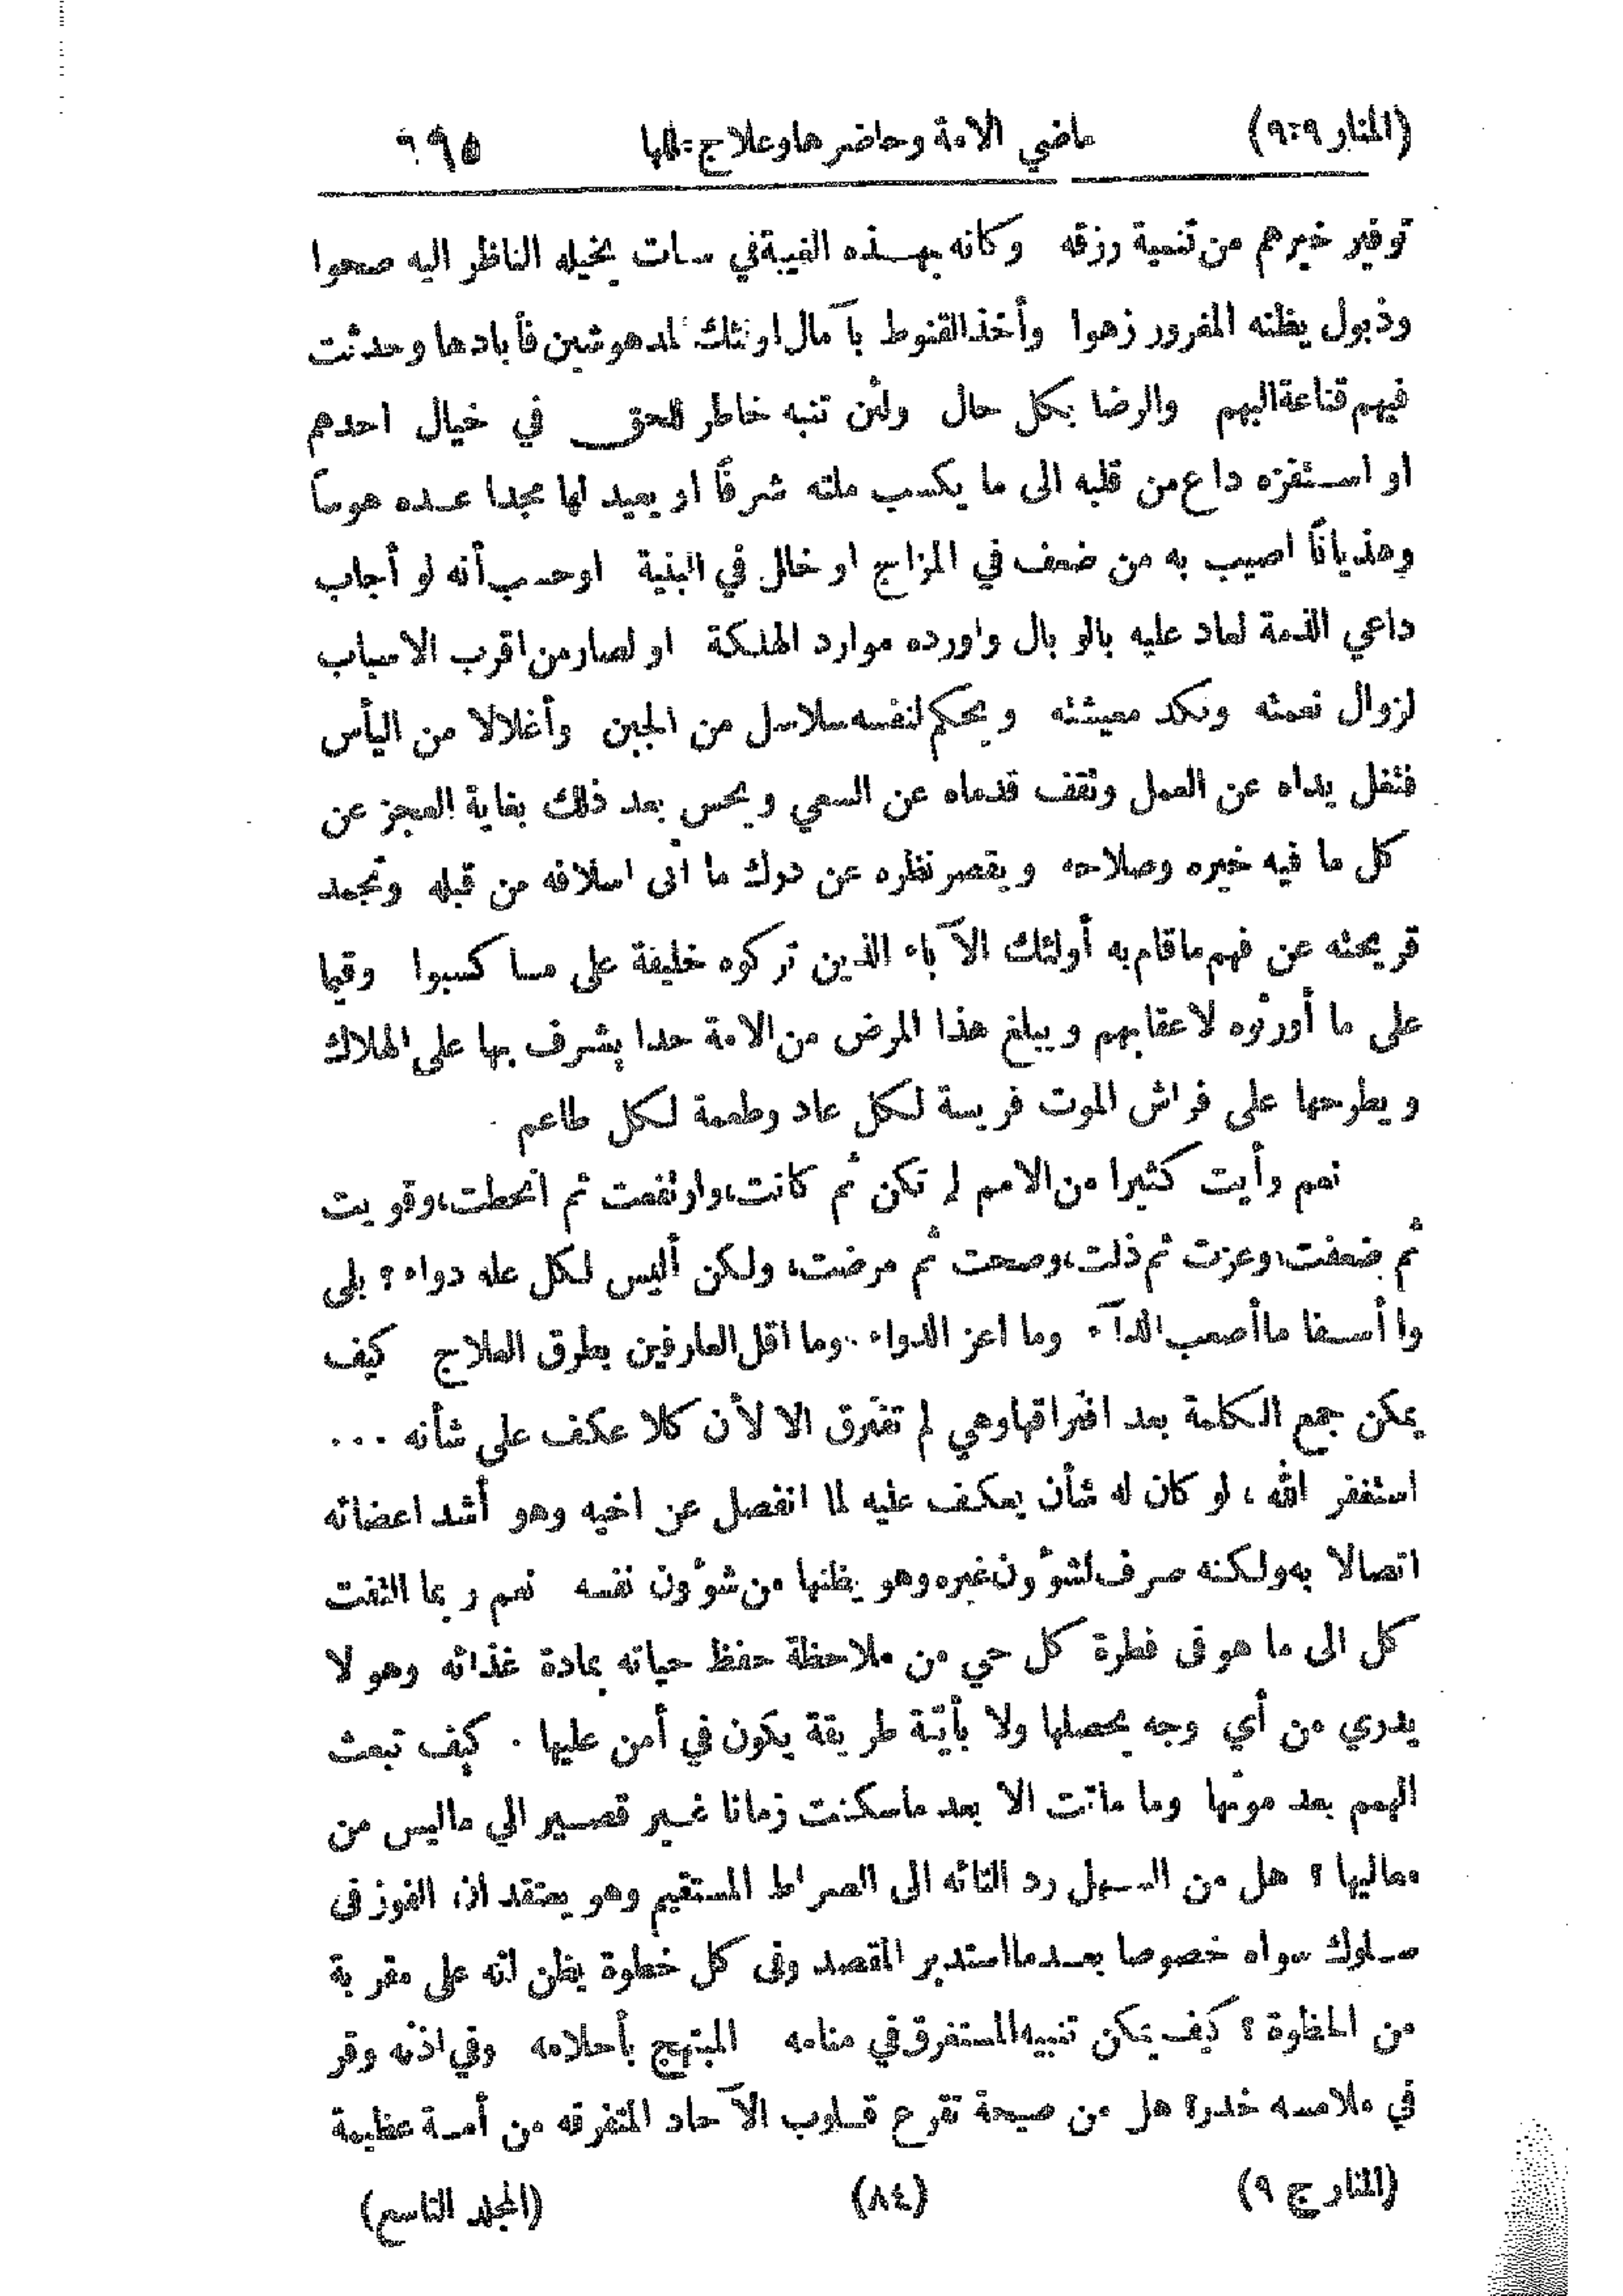 (المنار ٩:٩) ماضي الامة وحاضرها وعلاج عللها ٩٩٥
توفير خيرهم من تنمية رزقه وكانه بهذه الغيبة في سبات يخيله الناظر اليه صحوا
وذبول يظنه المغرور زهوا وأخذ القنوط بآمال اولئك المدهوشين فأبادها وحدثت
فيهم قناعة البهم والرضا بكل حال ولئن تنبه خاطر للحق في خيال احدهم
او استفزه داع من قلبه الى ما يكسب ملته شرفًا او يعيد لها مجدا عده هوسًا
وهذيانًا اصيب به من ضعف في المزاج او خلل في البنية او حسب أنه لو أجاب
داعي الذمة لعاد عليه بالوبال واورده موارد الهلكة او لصار من اقرب الاسباب
لزوال نعمته ونكد معيشته ويحكم لنفسه سلاسل من الجبن وأغلالا من اليأس
فتغل يداه عن العمل وتقف قدماه عن السعي ويحس بعد ذلك بغاية العجز عن
كل ما فيه خيره وصلاحه ويقصر نظره عن درك ما أتى اسلافه من قبله وتجمد
قريحته عن فهم ما قام به أولئك الآباء الذين تركوه خليفة على ما كسبوا وقيما
على ما أورثوه لاعقابهم ويبلغ هذا المرض من الامة حدا يشرف بها على الهلاك
ويطرحها على فراش الموت فريسة لكل عاد وطعمة لكل طاعم
نعم رأيت كثيرا من الامم لم تكن ثم كانت، وارتفعت ثم انحطت، وقويت
ثم ضعفت، وعزت ثم ذلت، وصحت ثم مرضت، ولكن أليس لكل علة دواء؟ بلى
وا أسفا ما أصعب الدآء وما اعز الدواء . وما اقل العارفين بطرق العلاج كيف
يمكن جمع الكلمة بعد افتراقها وهي لم تفترق الا لأن كلا عكف على شأنه ...
استغفر الله ، لو كان له شأن يعكف عليه لما انفصل عن اخيه وهو أشد اعضائه
اتصالا به ولكنه صرف لشؤون غيره وهو يظنها من شؤون نفسه نعم ربما التفت
كل الى ما هو فى فطرة كل حي من ملاحظة حفظ حياته بمادة غذائه وهو لا
يدري من أي وجه يحصلها ولا بأيّة طريقة يكون في أمن عليها . كيف تبعث
الهمم بعد موتها وما ماتت الا بعد ما سكنت زمانا غير قصير الى ما ليس من
معاليها ؟ هل من السهل رد التائه الى الصراط المستقيم وهو يعتقد ان الفوز فى
سلوك سواه خصوصا بعد ما استدبر المقصد وفى كل خطوة يظن انه على مقربة
من الحظوة ؟ كيف يمكن تنبيه المستغرق في منامه المبتهج بأحلامه وفي اذنه وقر
في ملامسه خدرة هل من صيحة تقرع قلوب الآحاد المتفرقه من أمة عظيمة
(المنار ج ٩) (٨٤) (المجلد التاسع)